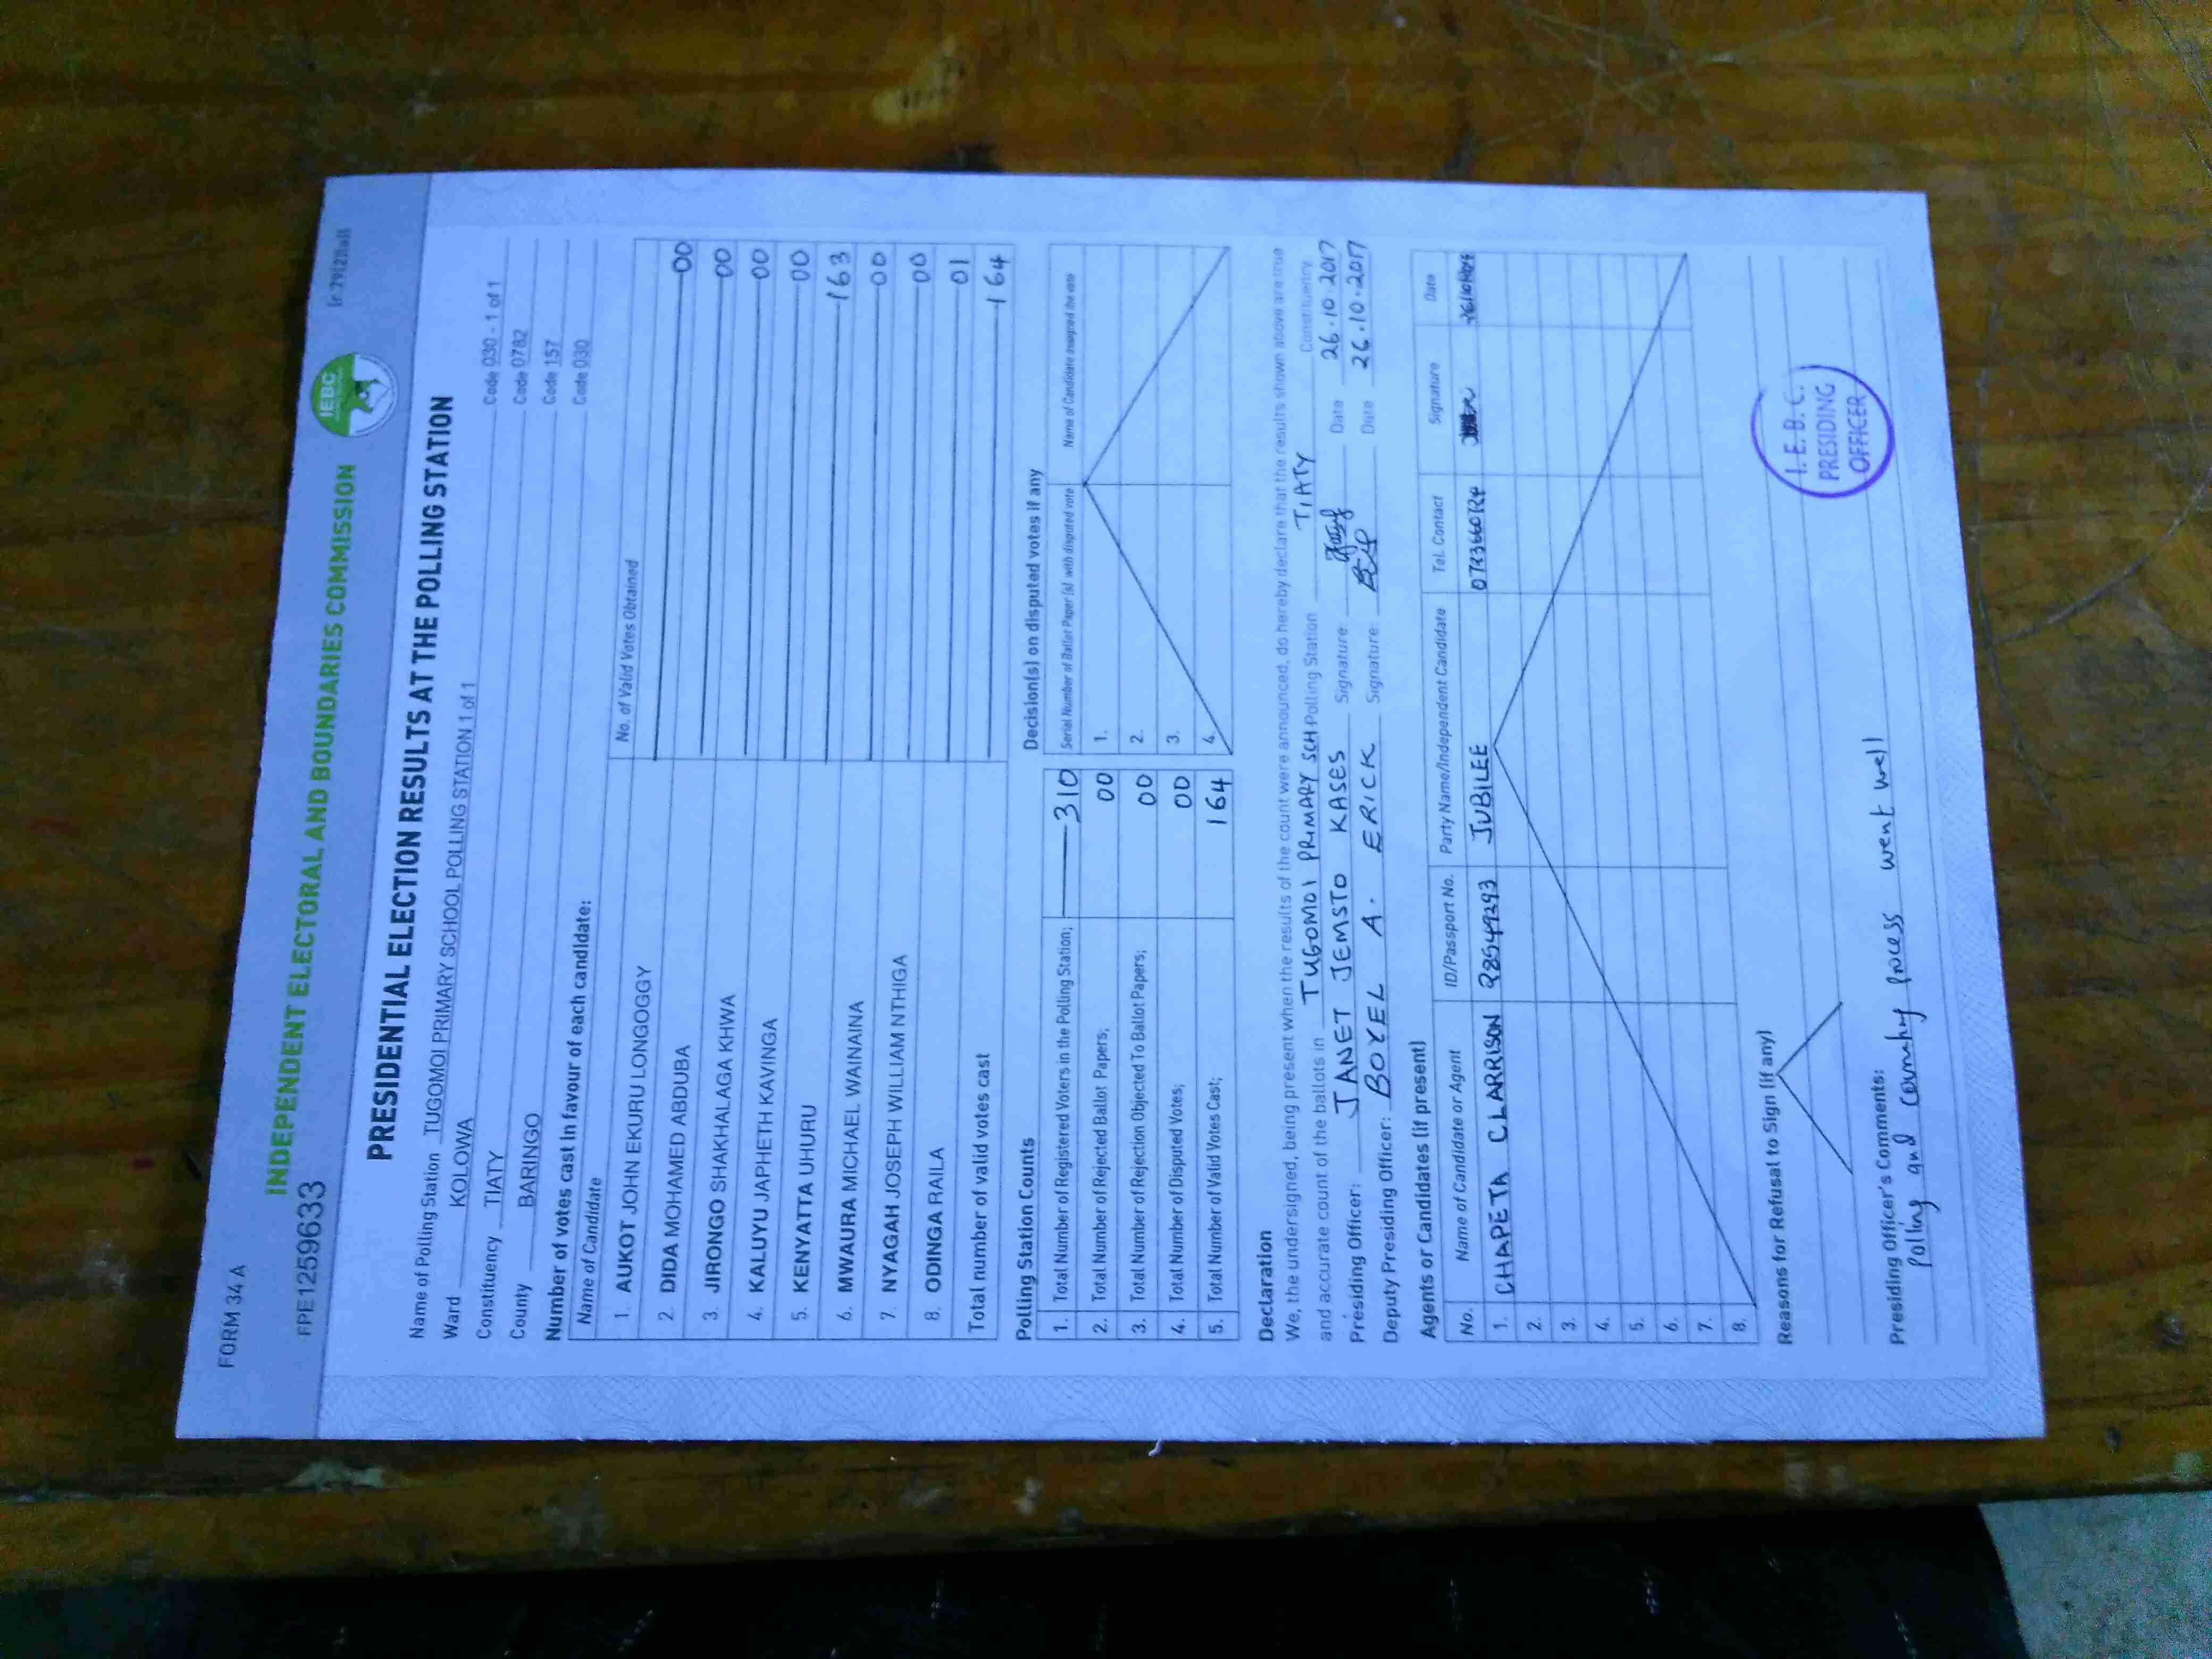 FORM 34 A
FPE1259633
INDEPENDENT ELECTORAL AND BOUNDARIES COMMISSION
IEBC
(r.79(2)(a))
PRESIDENTIAL ELECTION RESULTS AT THE POLLING STATION
Name of Polling Station TUGOMOI PRIMARY SCHOOL POLLING STATION 1 of 1 Code 030 - 1 of 1
Ward KOLOWA Code 0782
Constituency TIATY Code 157
County BARINGO Code 030
Number of votes cast in favour of each candidate:
Name of Candidate No. of Valid Votes Obtained
1. AUKOT JOHN EKURU LONGOGGY 00
2. DIDA MOHAMED ABDUBA 00
3. JIRONGO SHAKHALAGA KHWA 00
4. KALUYU JAPHETH KAVINGA 00
5. KENYATTA UHURU 163
6. MWAURA MICHAEL WAINAINA 00
7. NYAGAH JOSEPH WILLIAM NTHIGA 00
8. ODINGA RAILA 01
Total number of valid votes cast 164
Polling Station Counts
1. Total Number of Registered Voters in the Polling Station; 310
2. Total Number of Rejected Ballot Papers; 00
3. Total Number of Rejection Objected To Ballot Papers; 00
4. Total Number of Disputed Votes; 00
5. Total Number of Valid Votes Cast; 164
Decision(s) on disputed votes if any
Serial Number of Ballot Paper (s) with disputed vote Name of Candidate assigned the vote
1.
2.
3.
4.
Declaration
We, the undersigned, being present when the results of the count were announced, do hereby declare that the results shown above are true
and accurate count of the ballots in TUGOMOI PRIMARY SCH Polling Station TIATY Constituency
Presiding Officer: JANET JEMSTO KASES Signature: Date 26.10.2017
Deputy Presiding Officer: BOYEL A. ERICK Signature: Date 26.10.2017
Agents or Candidates (if present)
No. Name of Candidate or Agent ID/Passport No. Party Name/Independent Candidate Tel. Contact Signature Date
1. CHAPETA CLARRISON JUBILEE
2.
3.
4.
5.
6.
7.
8.
Reasons for Refusal to Sign (if any)
Presiding Officer's Comments:
Polling and counting process went well
I.E.B.C.
PRESIDING
OFFICER